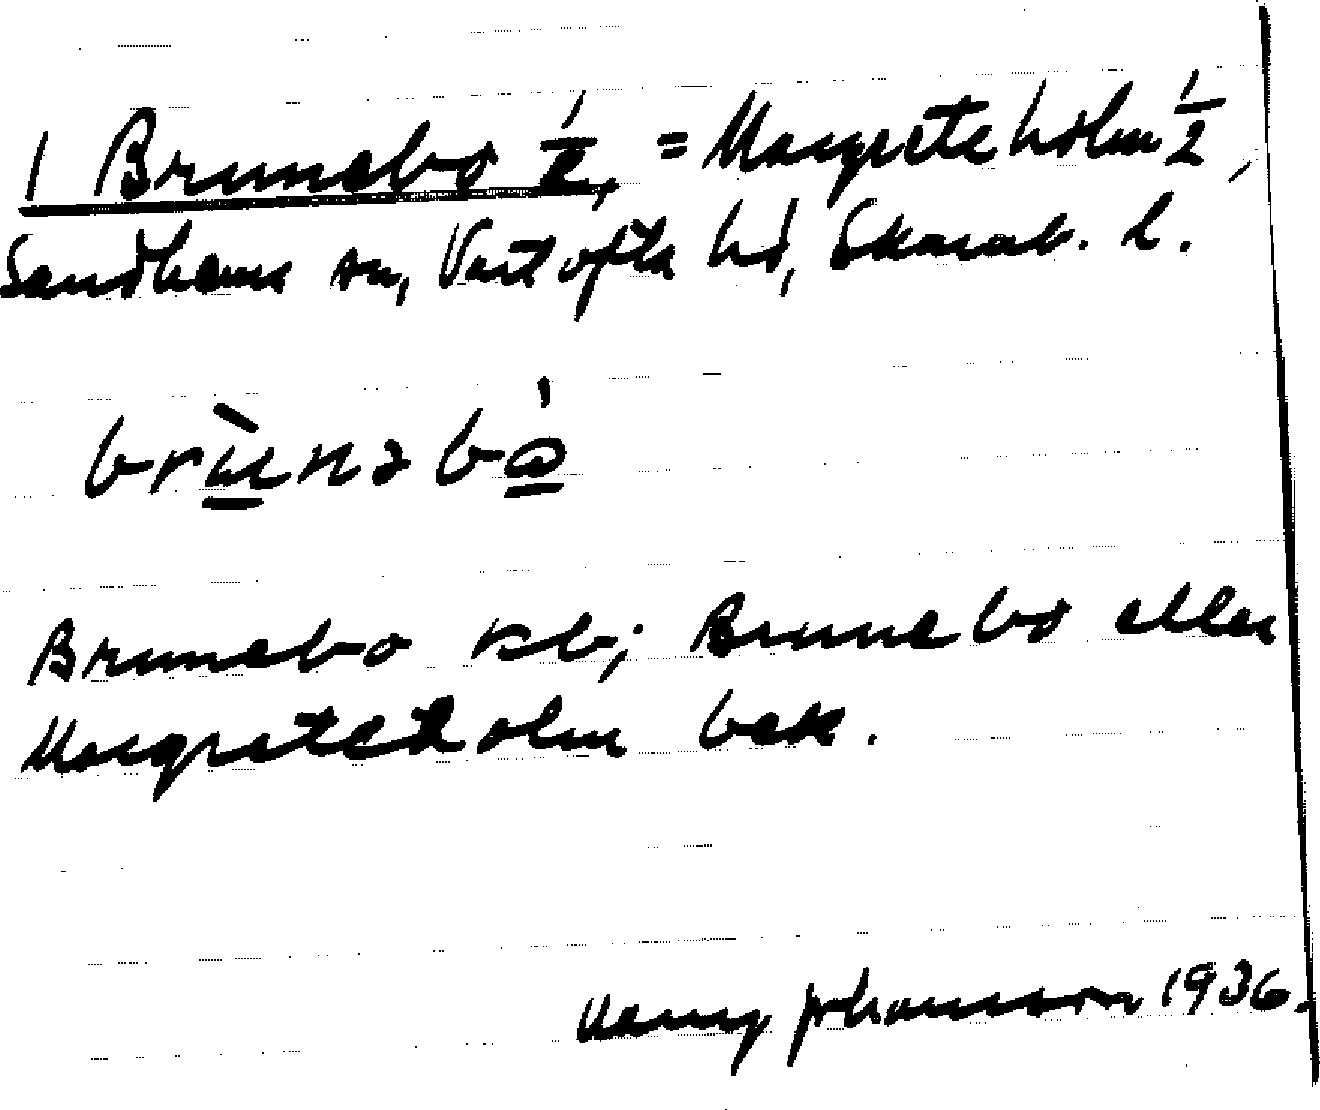 1 Brunebo 1/2, = Margreteholm 1/2,
Sandhem sn, Vartofta hd, Skarab. l.
brùnəbó
Brunebo rsb; Brunebo eller
Margreteholm bek.
Henry Johansson 1936.